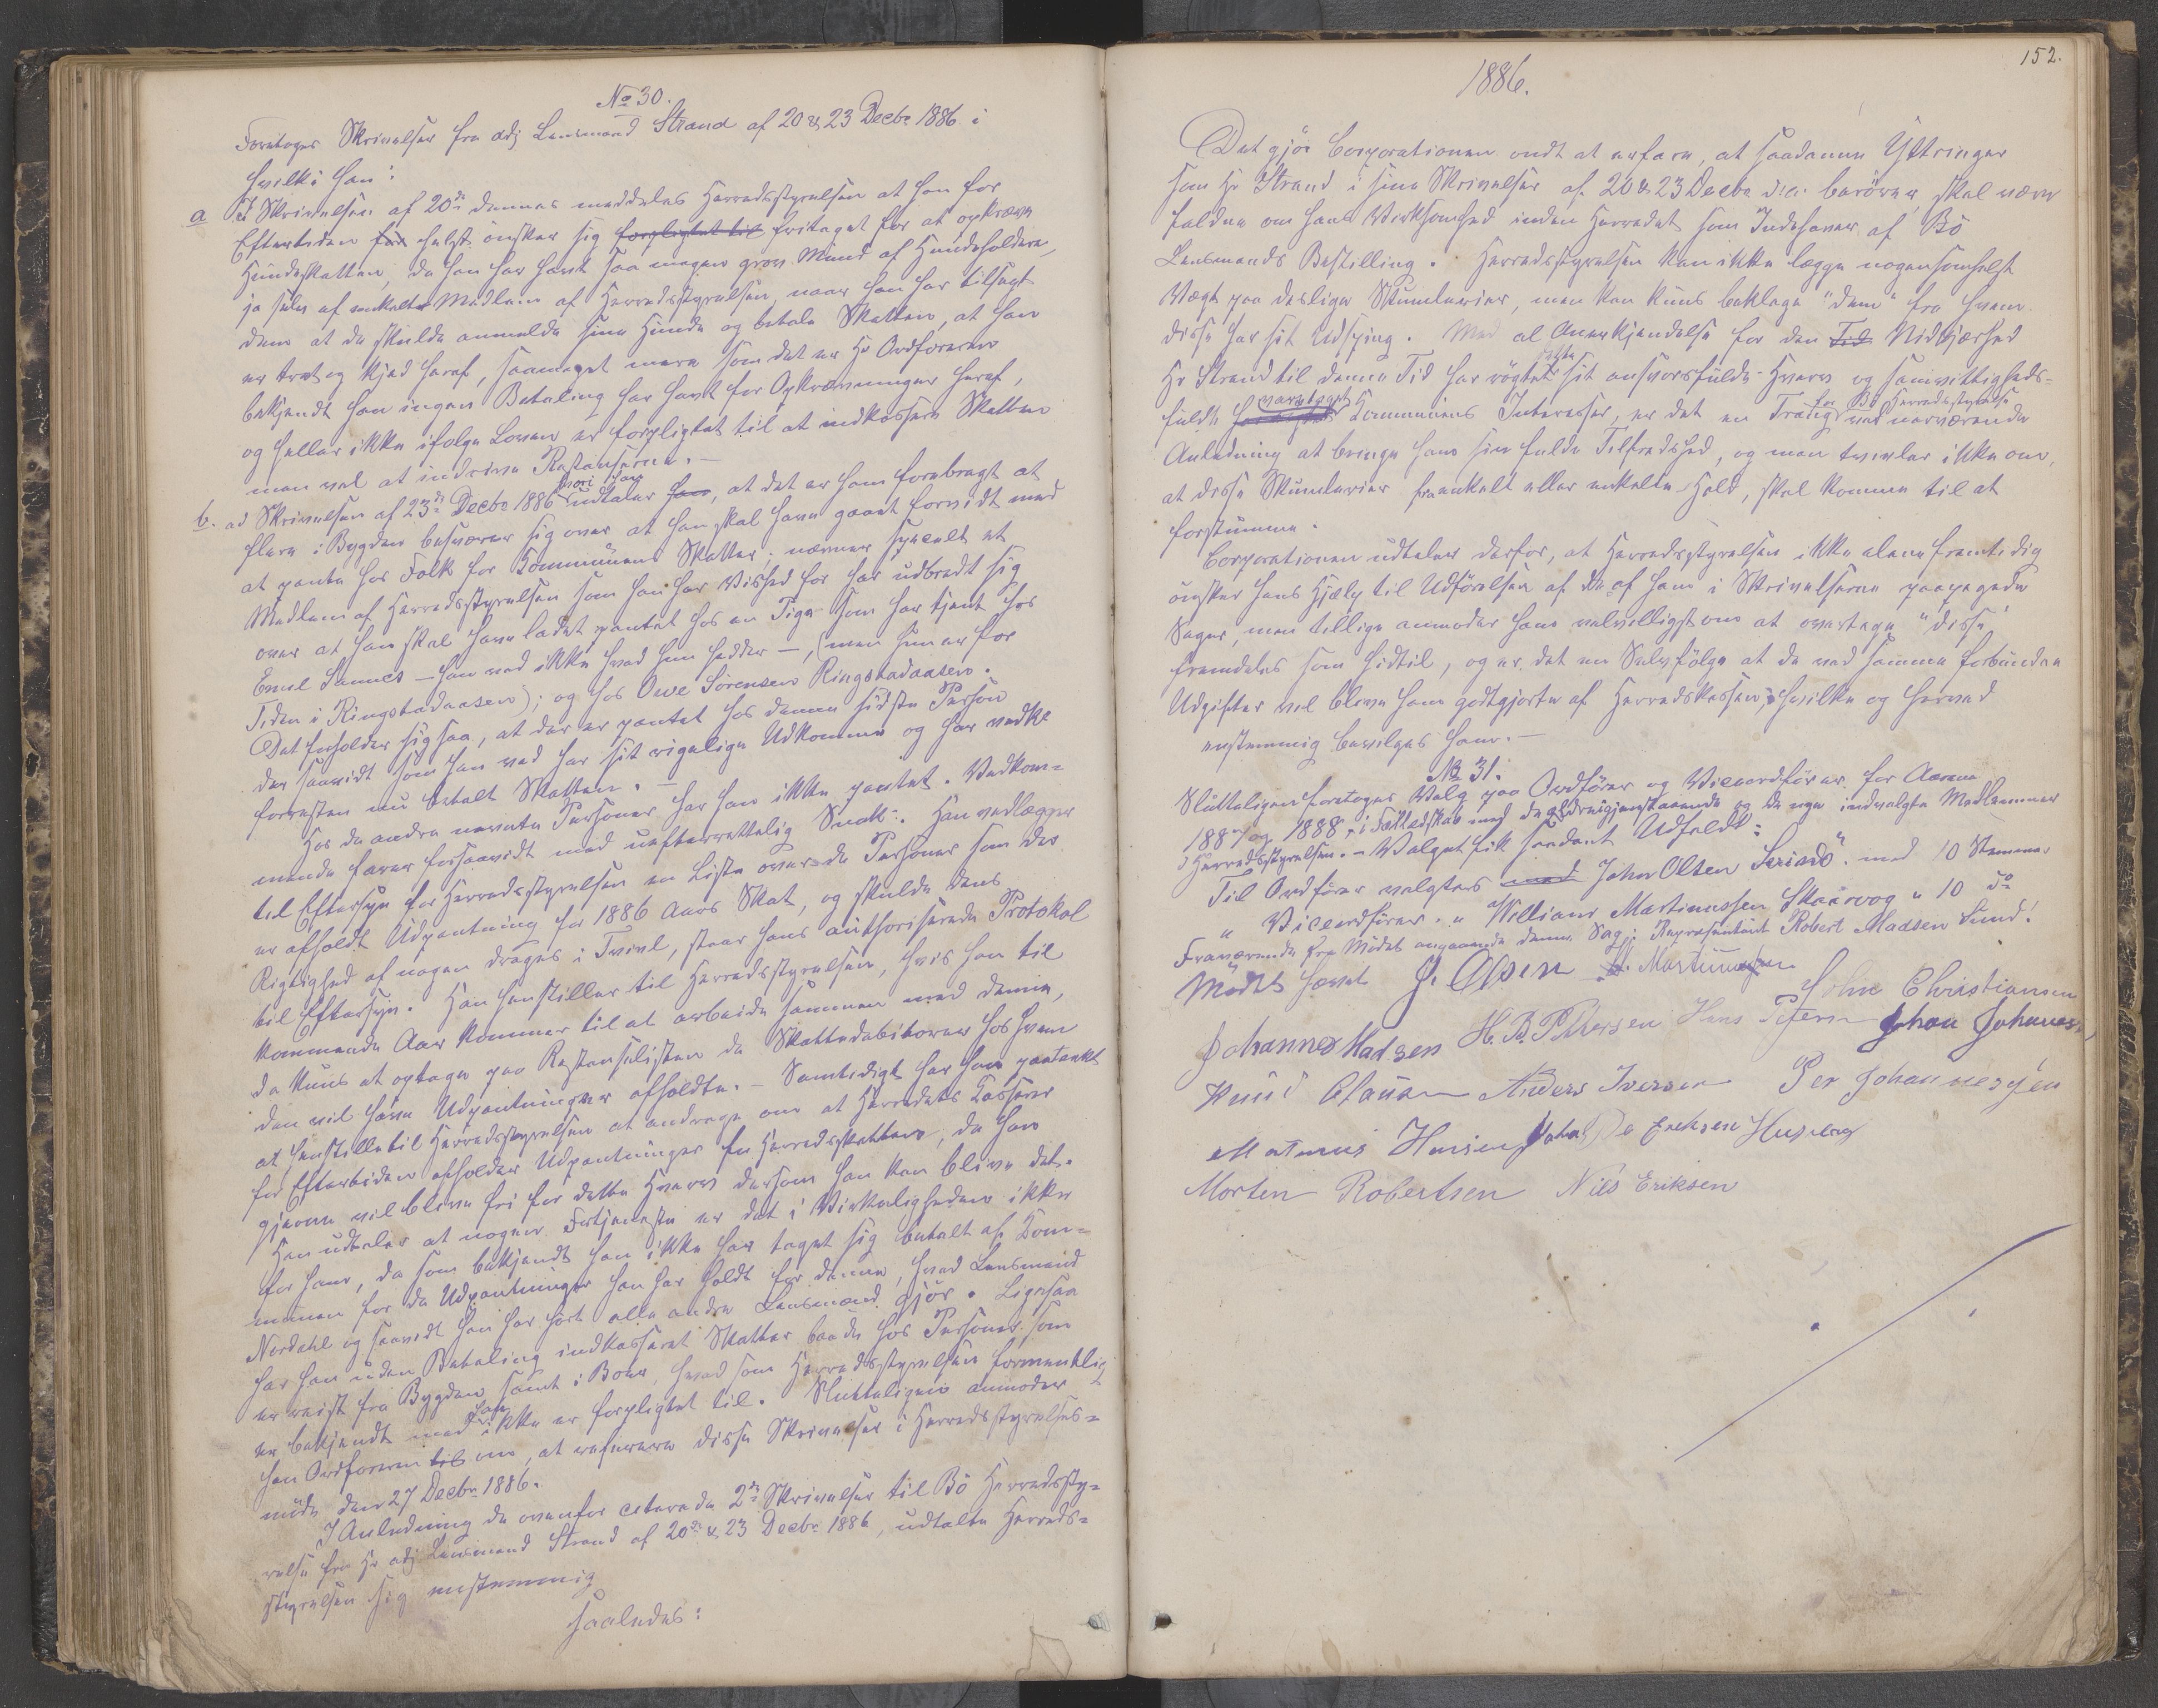 No 30.
Foretoges Skrivelser fra adj Lensmand Strand af 20 & 23 Decbr 1886 i
hvilke han:
a I Skrivelsen af 20de dennes meddeles Herredsstyrelsen at han for
Eftertiden for helst ønsker sig forpligtet til fritaget for at opkræve
Hundeskatten, da han har havt saa megen grov Mund af Hundeholdere,
ja selv af enkelte Medlem af Herredsstyrelsen, naar han har tilsagt
dem at de skulde anmelde sine Hunde og betale Skatten, at han
er træt og kjed heraf, saameget mere som det er Hr Ordføreren
bekjendt han ingen Betaling har havt for Opkrævninger heraf,
og heller ikke ifølge Loven er forpligtet til at indkassere Skatten
men vel at inddrive Restanserne. —
b. ad Skrivelsen af 23de Decbr 1886 hvori han udtaler han, at det er ham forebragt at
flere i Bygden besværer sig over at han skal have gaaet forvidt med
at pante hos Folk for Kommunens Skatter; nævner specielt et
Medlem af Herredsstyrelsen som han har Vished for har udbredt sig
over at han skal have ladet pantet hos en Pige som har tjent hos
Emil Sannes — han ved ikke hvad hun hedder —, (men hun er for
Tiden i Ringstadaasen); og hos Ove Sørensen Ringstadaasen.
Det forholder sig saa, at der er pantet hos denne sidste Person
der saavidt som han ved har sit rigelige Udkomme og har vedk
forresten nu betalt Skatten. —
Hos de andre nævnte Personer har han ikke pantet. Vedkom=
mende farer forsaavidt med uefterrettelig Snak. Han vedlægger
til Eftersyn for Herredsstyrelsen en Liste over de Personer som der
er afholdt Udpantning for 1886 Aars Skat, og skulde dens
Rigtighed af nogen drages i Tvivl, staar hans authoriserede Protokol
til Eftersyn. Han henstiller til Herredsstyrelsen, hvis han til
kommende Aar kommer til at arbeide sammen med denne,
da kuns at optage paa Restanselisten de Skattedebitorer hos hvem
den vil have Udpantninger afholdte. — Samtidigt har han paatænkt
at henstille til Herredsstyrelsen at andrage om at Herredets Kasserer
for Eftertiden afholder Udpantninger for Herredsskatten, da han
gjerne vil blive fri for dette Hverv dersom han kan blive det.
Han udtaler at nogen Fortjeneste er det i Virkeligheden ikke
for ham, da som bekjendt han ikke har taget sig betalt af Kom=
munen for de Udpantninger han har holdt for denne, hvad Lensmand
Nordahl og saavidt han har hørt alle andre Lensmænd gjør. Ligesaa
har han uden Betaling indkasseret Skatter baade hos Personer som
er reist fra Bygden samt i Boer, hvad som Herredsstyrelsen formentlig
er bekjendt med han ikke er forpligtet til. Slutteligen anmoder
han Ordføreren til om, at referere disse Skrivelser i Herredsstyrelses=
møde den 27 Decbr 1886.
I Anledning de ovenfor citerede 2de Skrivelser til Bø Herredssty=
relse fra Hr adj Lensmand Strand af 20de & 23 Decbr 1886, udtalte Herreds=
styrelsen sig enstemmig
saaledes:
152.
1886.
Det gjør Corporationen ondt at erfare, at saadanne Yttringer
som Hr Strand i sine Skrivelser af 20 & 23 Decbr d.a. berører, skal være
faldne om hans Virksomhed inden Herredet som Indehaver af Bø
Lensmands Bestilling. Herredsstyrelsen kan ikke lægge nogensomhelst
Vægt paa deslige Skumlerier, men kan kuns beklage "dem" fra hvem
disse har sit Udspring. Med al Anerkjendelse for den Tid Nidkjærhed
Hr Strand til denne Tid har røgtet sit ansvarsfulde Hverv og samvittigheds=
fuldt varetaget Kommunens Interesser, er det en Trang for Bø Herredsstyrelse ved nærværende
Anledning at bringe ham sin fulde Tilfredshed, og man tvivler ikke om,
at disse Skumlerier fra enkelt eller enkeltes Hold, skal komme til at
forstumme.
Corporationen udtaler derfor, at Herredsstyrelsen ikke alene fremtidig
ønsker hans Hjælp til Udførelsen af de af ham i Skrivelserne paapegede
Sager, men tillige anmoder ham velvilligst om at overtage "disse"
fremdeles som hidtil, og er det en Selvfølge at de ved samme forbundne
Udgifter vil blive ham godtgjorte af Herredskassen, hvilke og herved
enstemmig bevilges ham. —
No 31.
Slutteligen foretoges Valg paa Ordfører og Viceordfører for Aarene
1887 og 1888, i Fællesskab med de ældre igjenstaaende og de nye indvalgte Medlemmer
i Herredsstyrelsen. — Valget fik saadant Udfald:
Til Ordfører valgtes med John Olsen Svinø med 10 Stemmer
" Viceordfører " William Martinussen Skaarvog " 10 do
Fraværende fra Mødet angaaende denne Sag: Repræsentant Robert Madsen Sund.
Mødet hævet J. Olsen W. Martinussen
John Christiansen
Johannes Madsen H. B. Pettersen Hans Johan Johannes
Knud Clausen Anders Iversen Per Johannesen
Matinus Hansen Eriksen
Morten Robertsen Nils Eriksen